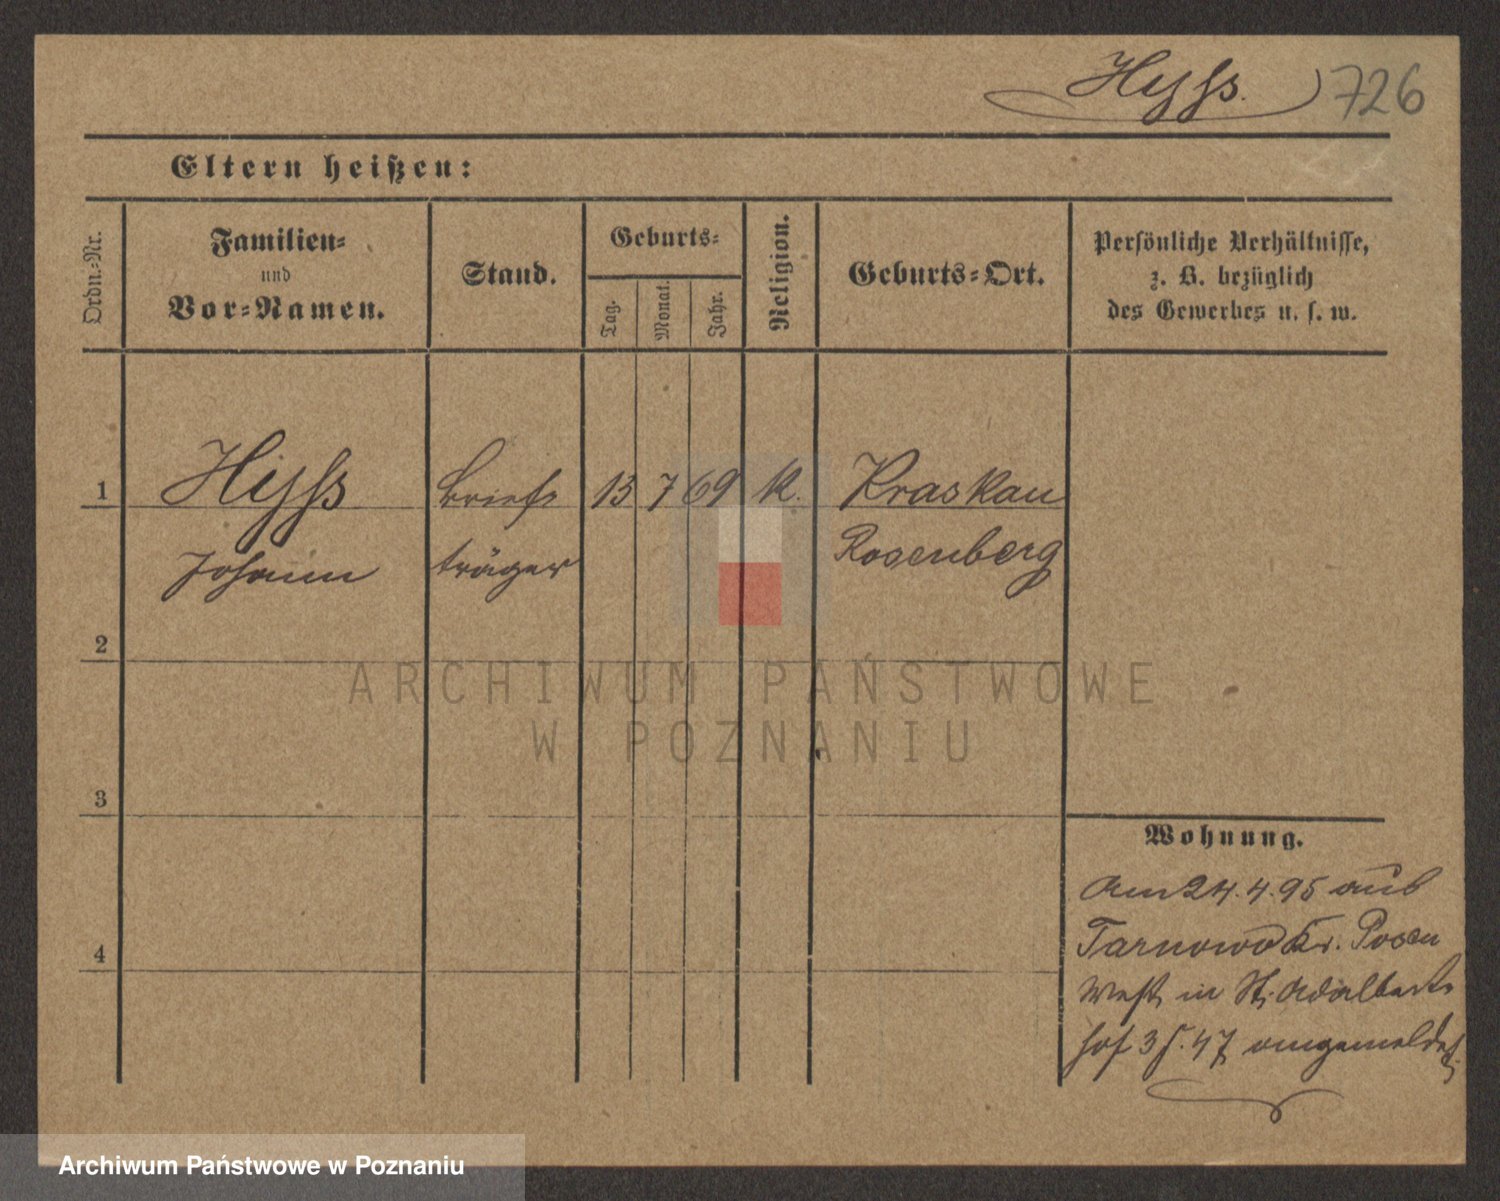 Hyss. 726
Eltern heißen:
Ordn.-Nr.
Familien-
und
Vor-Namen.
Stand.
Geburts-
Tag.
Monat.
Jahr.
Religion.
Geburts-Ort.
Persönliche Verhältnisse,
z. B. bezüglich
des Gewerbes u. s. w.
1 Hyss Brief- 13 7 69 K. Kraskau
Johann träger Rosenberg
2
3
4
Wohnung.
Am 24.4.95 aus
Tarnowo Kr. Posen
West in St. Adalbert-
hof 3 47 angemeldet.
ARCHIWUM PAŃSTWOWE
W POZNANIU
Archiwum Państwowe w Poznaniu